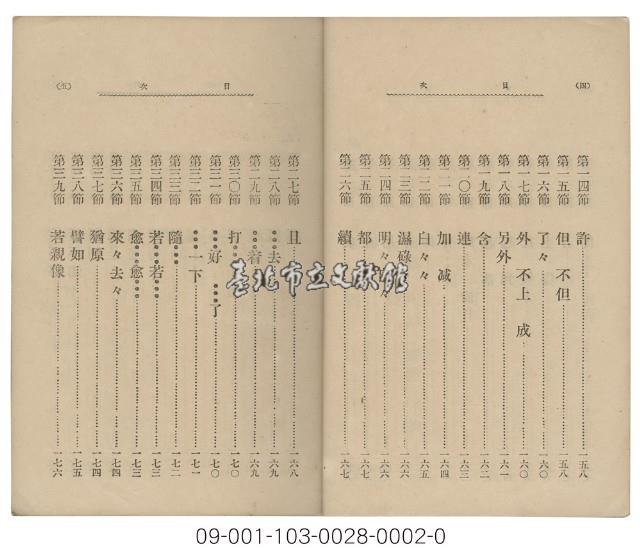 (四)
目次
第一四節 許 一五八
第一五節 但 不但 一五八
第一六節 了々 一六〇
第一七節 外 不上 成 一六〇
第一八節 另外 一六一
第一九節 含 一六二
第二〇節 連 一六三
第二一節 加 減 一六四
第二二節 白々 一六五
第二三節 濕碌 一六六
第二四節 明々 々 一六六
第二五節 都 一六七
第二六節 續 一六七
目次
(五)
第二七節 且 一六八
第二八節 …去… 一六九
第二九節 …着… 一六九
第三〇節 打… 一七〇
第三一節 …好 …了 一七〇
第三二節 …一下 一七一
第三三節 隨… 一七二
第三四節 若…若… 一七三
第三五節 愈…愈… 一七三
第三六節 來々去々 一七四
第三七節 猶原 一七四
第三八節 譬如 一七五
第三九節 若親像 一七六
臺北市立文獻館
09-001-103-0028-0002-0